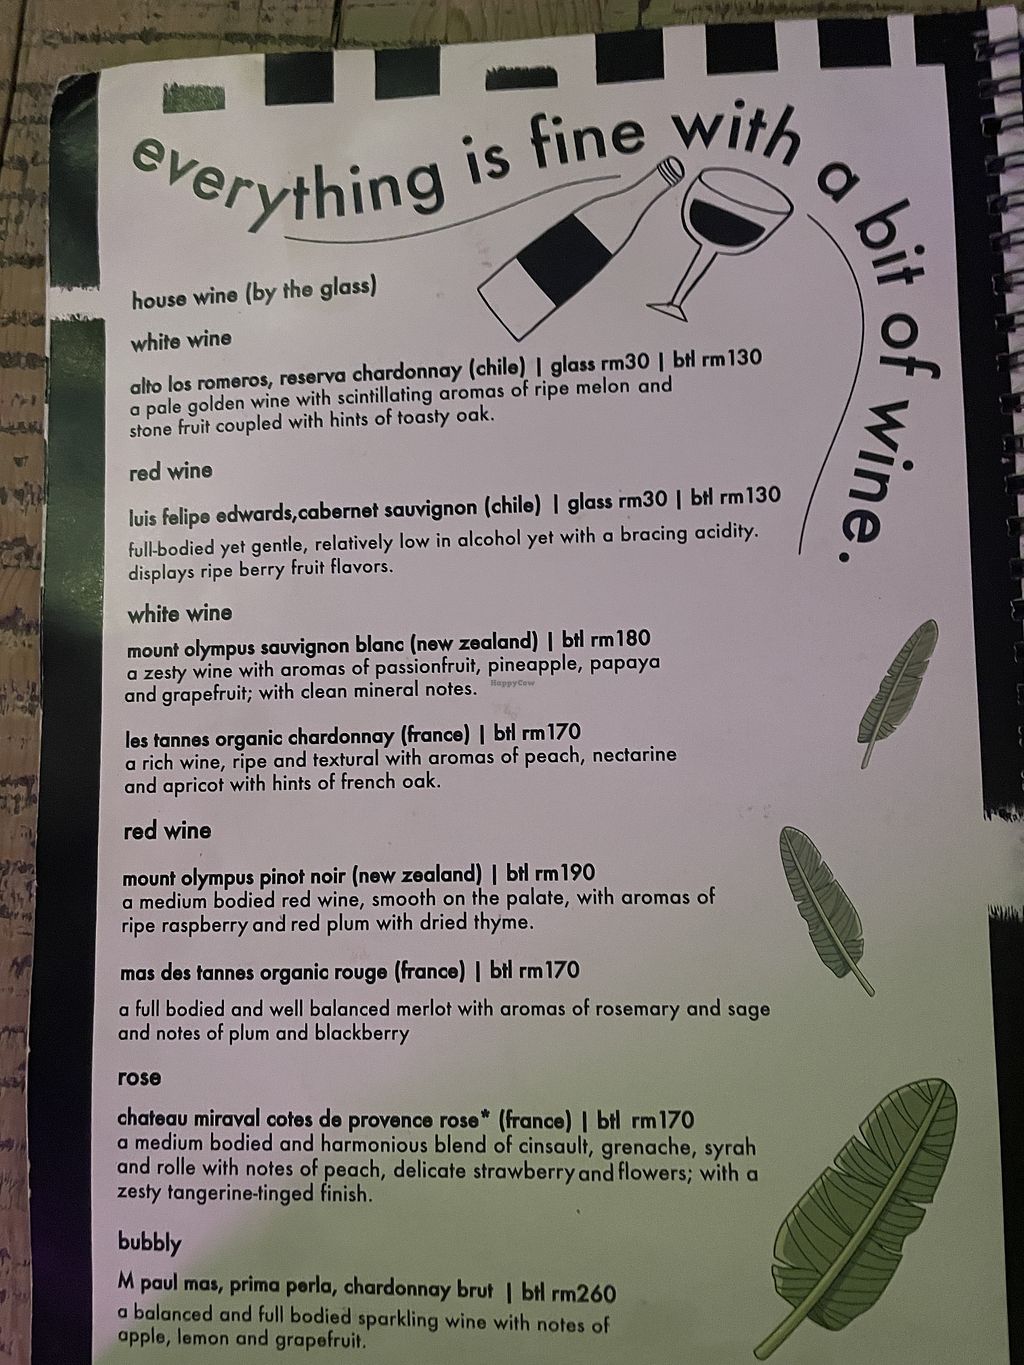 everything is fine with a bit of wine.
house wine (by the glass)
white wine
alto los romeros, reserva chardonnay (chile) | glass rm30 | btl rm130
a pale golden wine with scintillating aromas of ripe melon and
stone fruit coupled with hints of toasty oak.
red wine
luis felipe edwards,cabernet sauvignon (chile) | glass rm30 | btl rm130
full-bodied yet gentle, relatively low in alcohol yet with a bracing acidity.
displays ripe berry fruit flavors.
white wine
mount olympus sauvignon blanc (new zealand) | btl rm180
a zesty wine with aromas of passionfruit, pineapple, papaya
and grapefruit; with clean mineral notes.
HappyCow
les tannes organic chardonnay (france) | btl rm170
a rich wine, ripe and textural with aromas of peach, nectarine
and apricot with hints of french oak.
red wine
mount olympus pinot noir (new zealand) | btl rm190
a medium bodied red wine, smooth on the palate, with aromas of
ripe raspberry and red plum with dried thyme.
mas des tannes organic rouge (france) | btl rm170
a full bodied and well balanced merlot with aromas of rosemary and sage
and notes of plum and blackberry
rose
chateau miraval cotes de provence rose* (france) | btl rm170
a medium bodied and harmonious blend of cinsault, grenache, syrah
and rolle with notes of peach, delicate strawberry and flowers; with a
zesty tangerine-tinged finish.
bubbly
M paul mas, prima perla, chardonnay brut | btl rm260
a balanced and full bodied sparkling wine with notes of
apple, lemon and grapefruit.